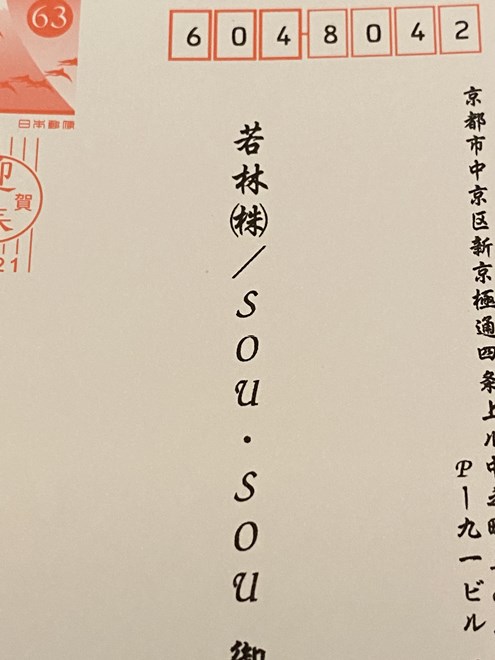 63
日本郵便
賀
21
604-8042
京都市中京区新京極通四条上ル中
P－九一ビル
若林㈱／SOU・SOU 御